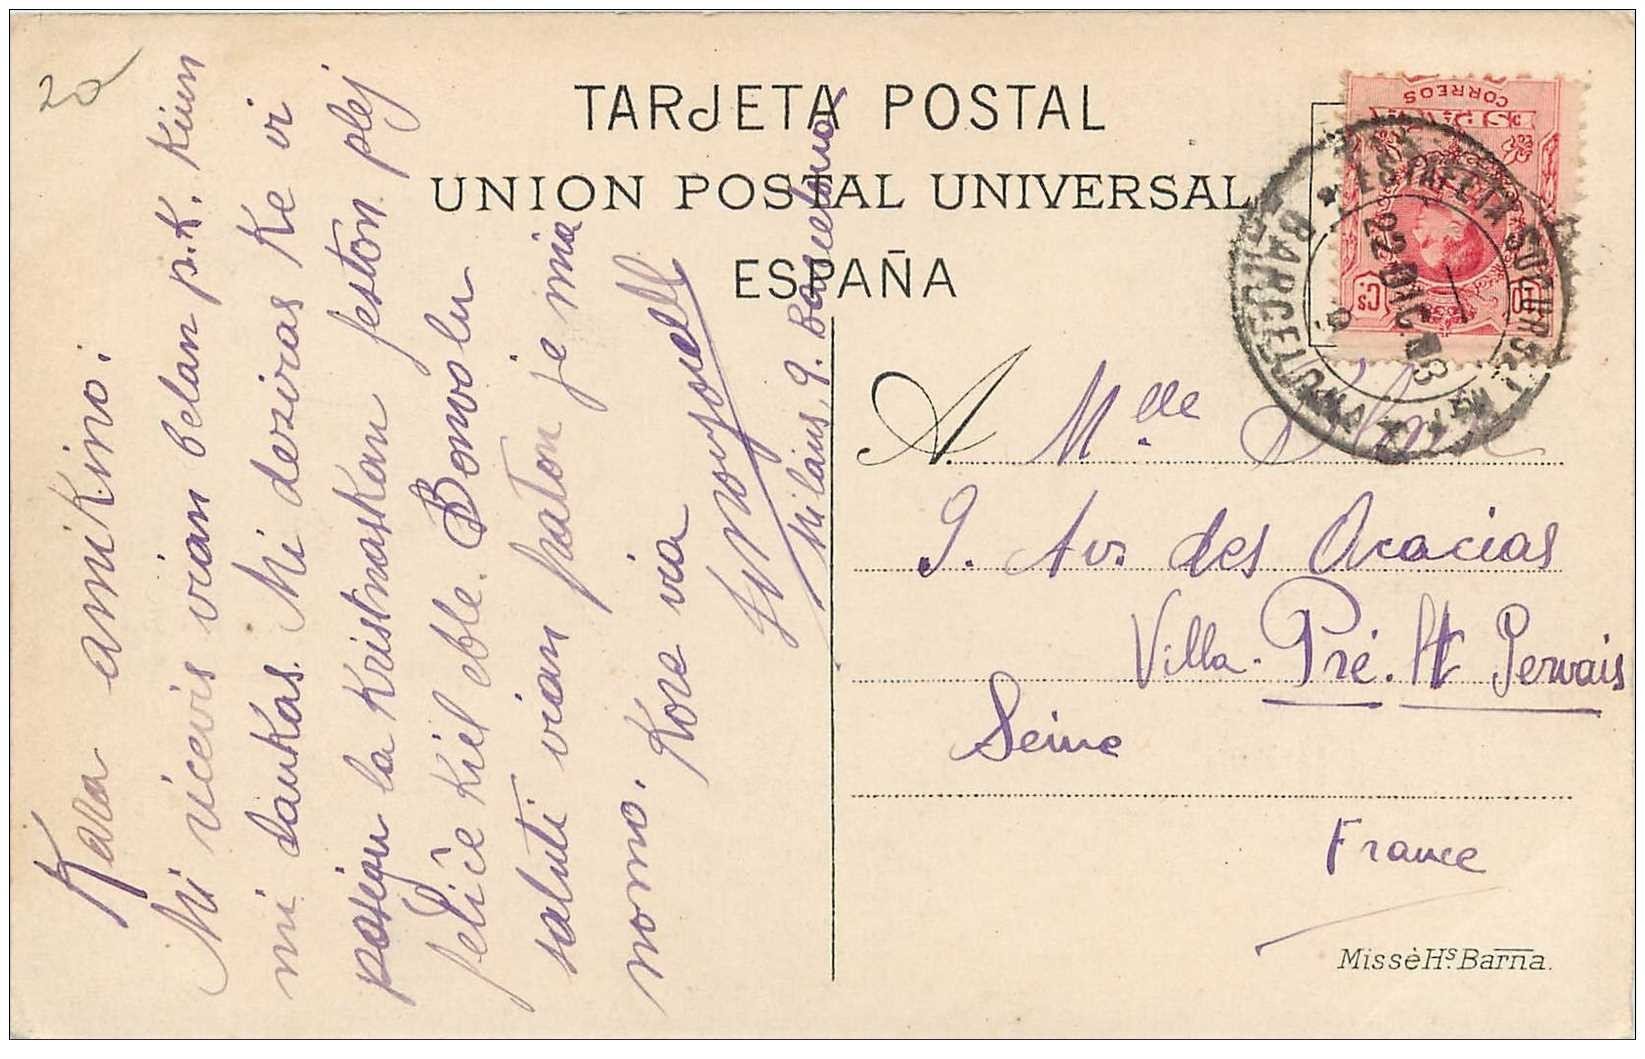 20
TARJETA POSTAL
UNION POSTAL UNIVERSAL
ESPAÑA
CORREOS
Cs
ESTAFETA SUCURSAL
22 DIC
BARCELONA
Kara amikino.
Mi ricevis vian belan p.k. kiun
mi dankas. Mi deziras ke vi
pasigu la kristnaskan feston plej
feliĉe kiel eble. Bonvolu
saluti vian fraton je mia
nomo. Kore via
Milans, 9. Barcelona
A. Mlle
9. Av. des Acacias
Villa. Pré. St Gervais
Seine
France
Missè Hs. Barna.